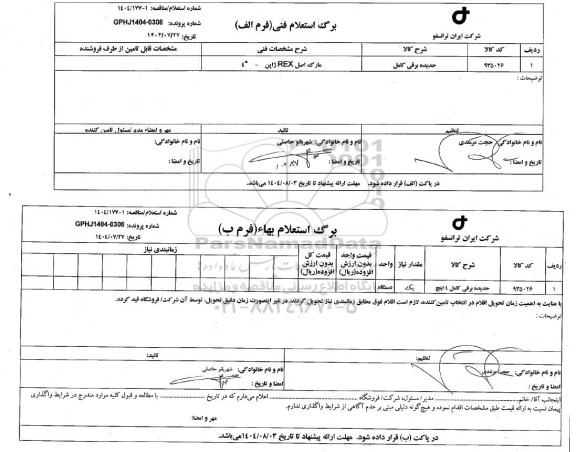 شماره استعلام/مناقصه: ۱۴۰۴/۱۷۷-۱
برگ استعلام فنی(فرم الف)
شماره پرونده: GPHJ1404-0308
تاریخ: ۱۴۰۴/۰۷/۲۷
شرکت ایران ترانسفو
ردیف کد کالا شرح کالا شرح مشخصات فنی مشخصات قابل تامین از طرف فروشنده
۱ ۹۳۵۰۲۶ حدیده برقی کامل مارک اصل REX ژاپن - ۴"
توضیحات:
تنظیم تائید مهر و امضاء مدیر/مسئول تامین کننده
نام و نام خانوادگی: حجت مرتعدی نام و نام خانوادگی: شهربانو حاصلی نام و نام خانوادگی:
تاریخ و امضا: تاریخ و امضا: تاریخ و امضا:
در پاکت (الف) قرار داده شود. مهلت ارائه پیشنهاد تا تاریخ ۱۴۰۴/۰۸/۰۳ می‌باشد.
شماره استعلام/مناقصه: ۱۴۰۴/۱۷۷-۱
برگ استعلام بهاء(فرم ب)
شماره پرونده: GPHJ1404-0308
تاریخ: ۱۴۰۴/۰۷/۲۷
شرکت ایران ترانسفو
ردیف کد کالا شرح کالا مقدار نیاز واحد قیمت واحد بدون ارزش افزوده(ریال) قیمت کل بدون ارزش افزوده(ریال) زمانبندی نیاز
۱ ۹۳۵۰۲۶ حدیده برقی کامل ۴ اینچ یک دستگاه
با عنایت به اهمیت زمان تحویل اقلام در انتخاب تامین‌کننده، لازم است اقلام فوق مطابق زمانبندی نیاز تحویل گردند، در غیر اینصورت زمان دقیق تحویل، توسط آن شرکت/فروشگاه قید گردد.
توضیحات:
تنظیم: تائید:
نام و نام خانوادگی: حجت مرتعدی نام و نام خانوادگی: شهربانو حاصلی
امضا و تاریخ: امضا و تاریخ:
اینجانب آقا/خانم ........ مدیر/مسئول، شرکت/فروشگاه ........ اعلام می‌دارم که در تاریخ ........ با مطالعه و قبول کلیه موارد مندرج در شرایط واگذاری
پیمان نسبت به ارائه قیمت طبق مشخصات اقدام نموده و هیچ‌گونه دلیلی مبنی بر عدم آگاهی از شرایط واگذاری ندارم.
مهر و امضا:
در پاکت (ب) قرار داده شود. مهلت ارائه پیشنهاد تا تاریخ ۱۴۰۴/۰۸/۰۳ می‌باشد.
ParsNamadData
پایگاه اطلاع رسانی مناقصه و مزایده
۰۲۱-۸۸۳۴۹۶۷۰-۵